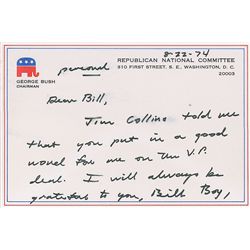 8-22-74
REPUBLICAN NATIONAL COMMITTEE
310 FIRST STREET, S. E., WASHINGTON, D. C.
20003
GEORGE BUSH
CHAIRMAN
personal
Dear Bill,
Jim Collins told me
that you put in a good
word for me on the V.P.
deal. I will always be
grateful to you, Bill Boy,